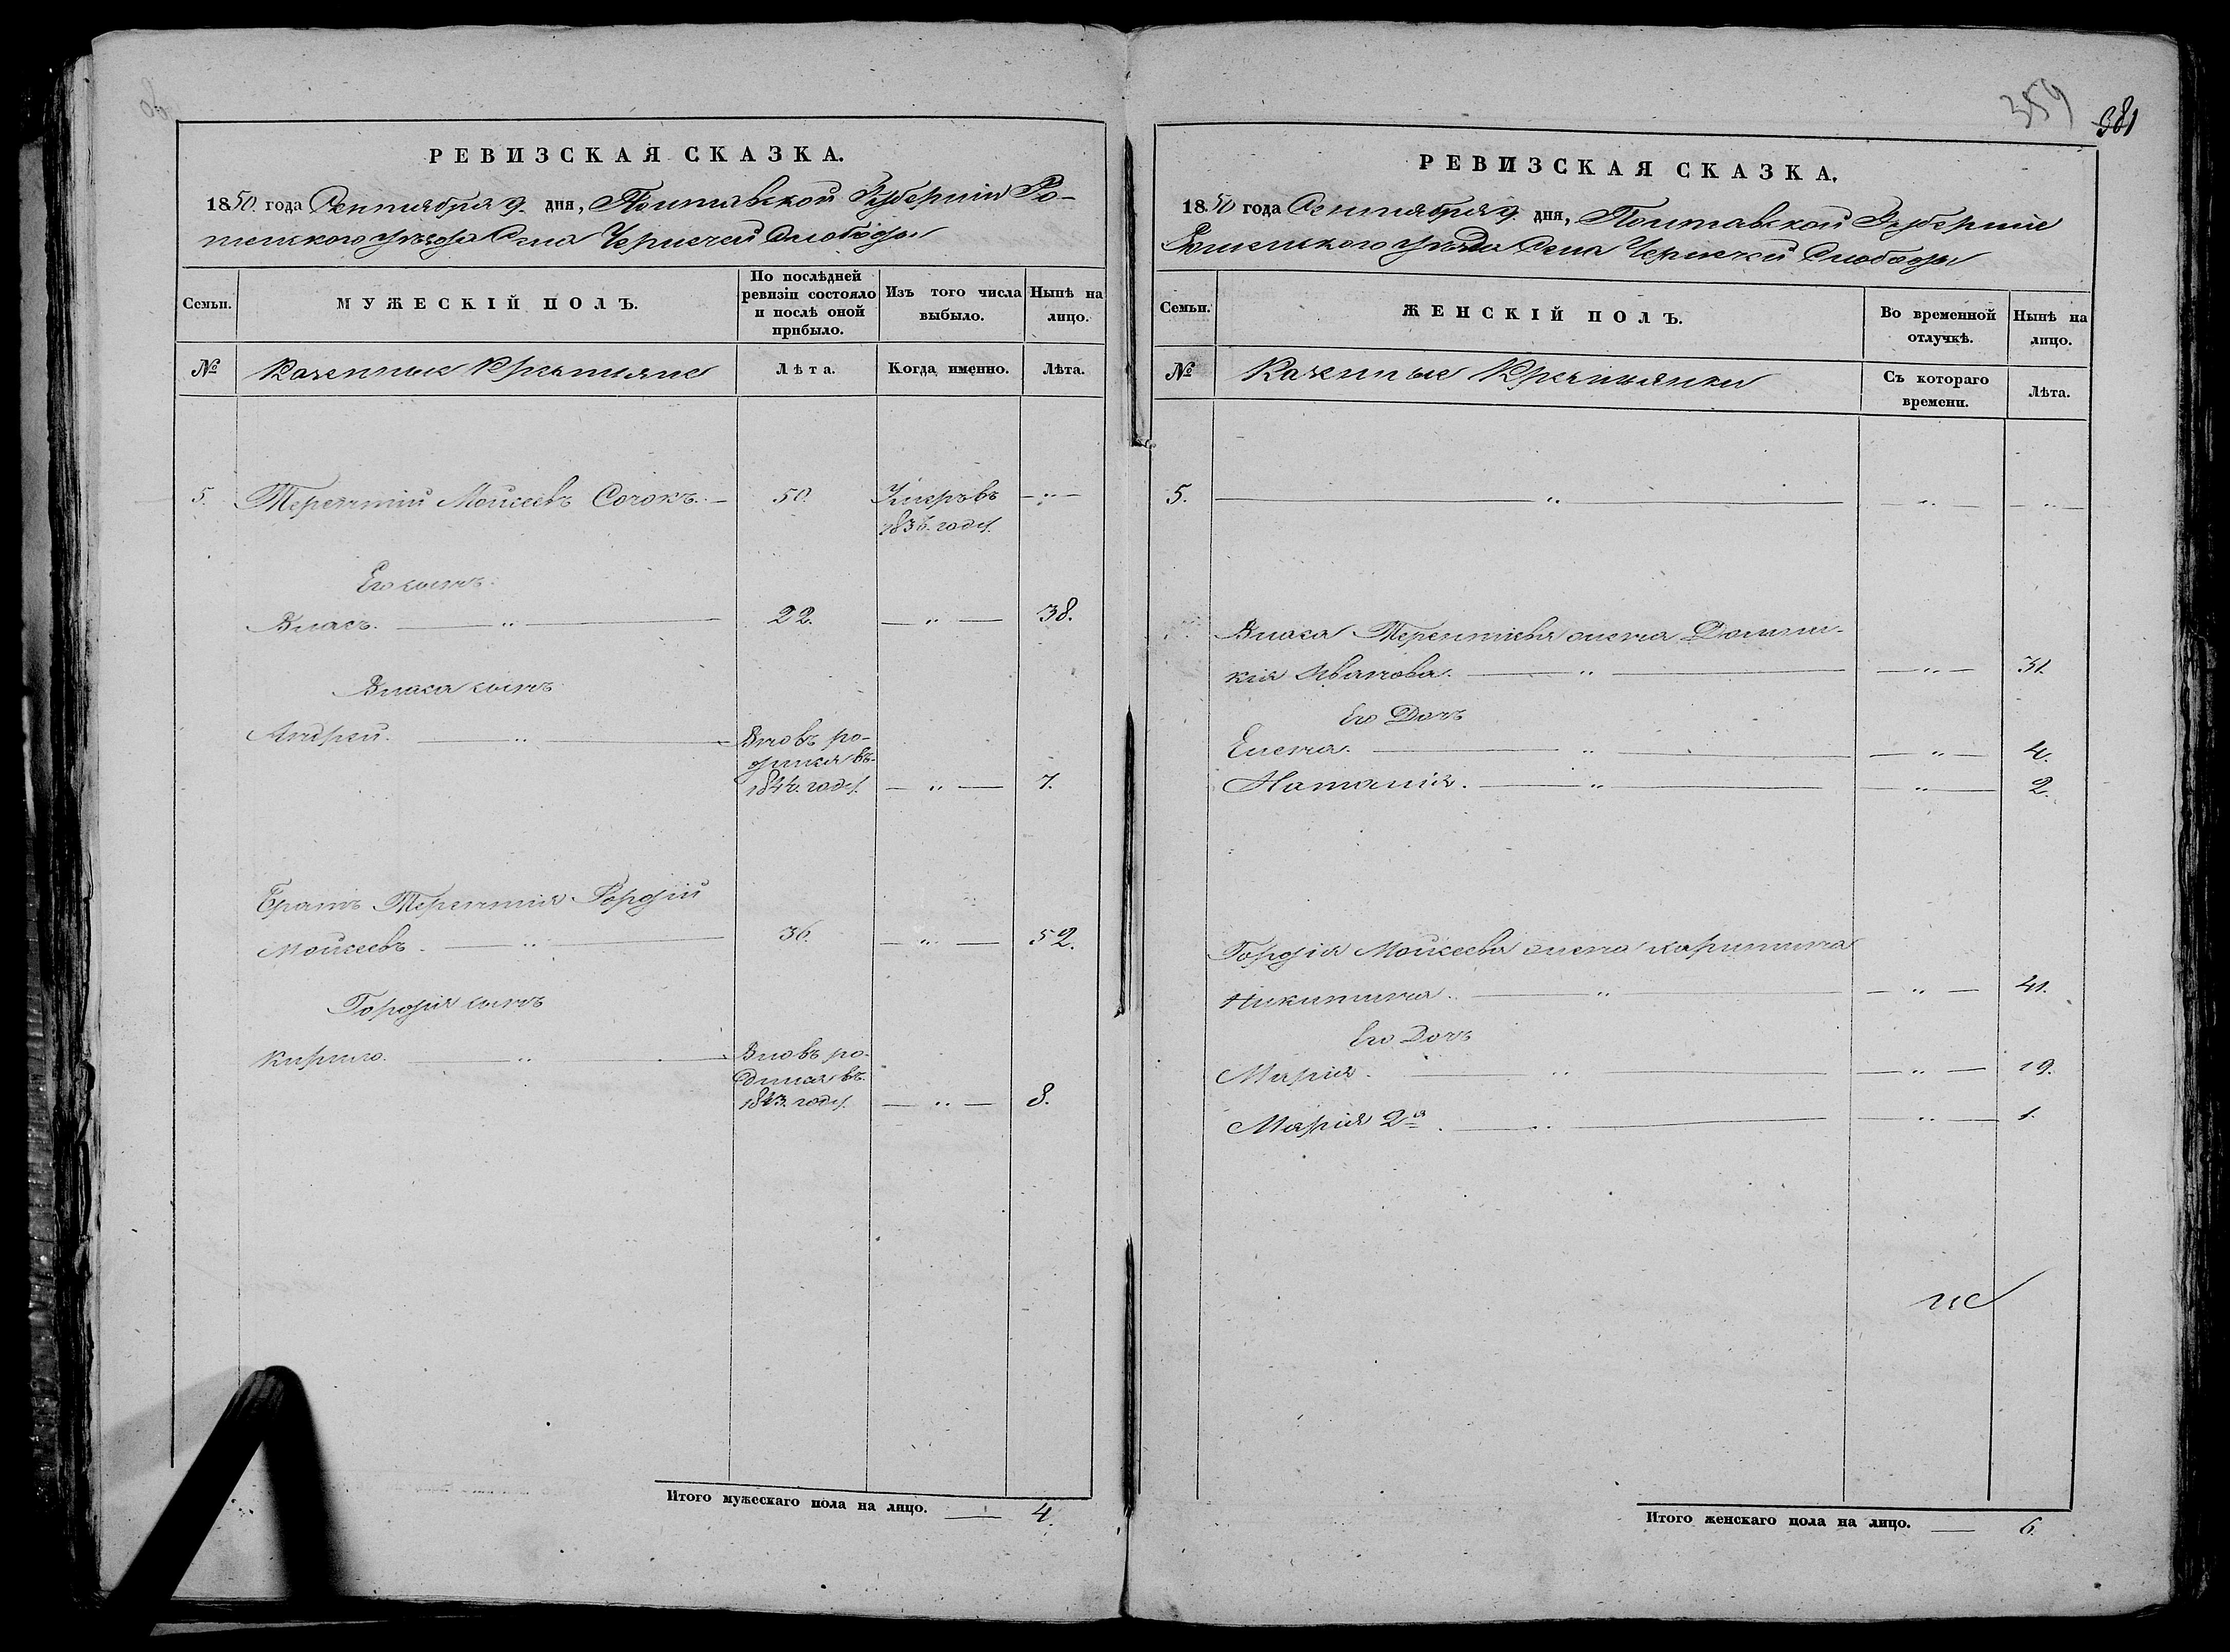 РЕВИЗСКАЯ СКАЗКА.
1850. года Сентября 9. дня, Полтавской Губерніи Ро-
менского уѣзда Села Чернечей Слободы
Семьи.
МУЖЕСКІЙ ПОЛЪ.
По послѣдней
ревизіи состояло
и послѣ оной
прибыло.
Изъ того числа
выбыло.
Нынѣ на
лицо.
№
Казенные Крестьяне
Лѣта.
Когда именно.
Лѣта.
5. Терентій Мойсеевъ Сочокъ. 50. Умеръ въ
1835. году.
Его сынъ.
Власъ. 22. 38.
Власа сынъ
Андрей. Вновь ро-
дился въ
1844. году. 7.
Братъ Терентія Гордій
Мойсеевъ. 36. 52.
Гордія сынъ
Кирило. Вновь ро-
дился въ
1843. году. 8.
Итого мужескаго пола на лицо. 4.
359
381
РЕВИЗСКАЯ СКАЗКА.
1850 года Сентября 9. дня, Полтавской Губерніи
Роменского уѣзда Села Чернечей Слободы
Семьи.
ЖЕНСКІЙ ПОЛЪ.
Во временной
отлучкѣ.
Нынѣ на
лицо.
№
Казенные Крестьянки
Съ котораго
времени.
Лѣта.
5.
Власа Терентіева жена Домни-
кія Иванова. 31.
Его Дочь
Елена. 4.
Наталія. 2.
Гордія Мойсеева жена Харитина
Никитина. 41.
Его Дочь
Марія. 19.
Марія 2я. 1.
Итого женскаго пола на лицо. 6.